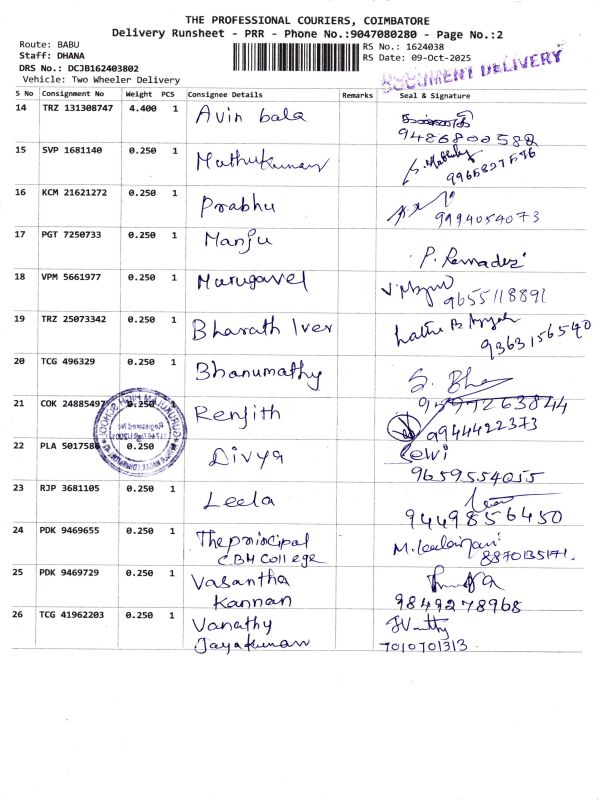 THE PROFESSIONAL COURIERS, COIMBATORE
Delivery Runsheet - PRR - Phone No.:9047080280 - Page No.:2
Route: BABU
Staff: DHANA
DRS No.: DCJB162403802
Vehicle: Two Wheeler Delivery
RS No.: 1624038
RS Date: 09-Oct-2025
DOCUMENT DELIVERY
S No Consignment No Weight PCS Consignee Details Remarks Seal & Signature
14 TRZ 131308747 4.400 1 Avin bala
9486800582
15 SVP 1681140 0.250 1 Muthukumar
9965827576
16 KCM 21621272 0.250 1 Prabhu
9994054073
17 PGT 7250733 0.250 1 Manju
P. Ramadevi
18 VPM 5661977 0.250 1 Murugavel
9655118891
19 TRZ 25073342 0.250 1 Bharath Iver
9363156540
20 TCG 496329 0.250 1 Bhanumathy
S. Bha
9599263844
21 COK 24885497 0.250 Renjith
9944422373
22 PLA 5017580 0.250 Divya
9659554055
23 RJP 3681105 0.250 1 Leela
9449856450
24 PDK 9469655 0.250 1 The principal
CBM College
8870135171.
25 PDK 9469729 0.250 1 Vasantha
Kannan
9849278968
26 TCG 41962203 0.250 1 Vanathy
Jayakumar
7010701313